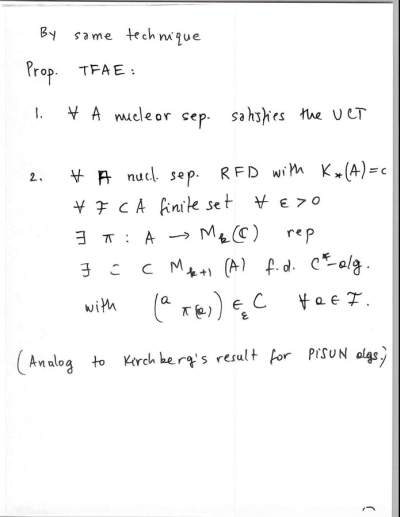 By same technique
Prop. TFAE:
1. ∀ A nuclear sep. satisfies the UCT
2. ∀ A nucl. sep. RFD with K*(A)=c
∀ F ⊂ A finite set ∀ ε>0
∃ π : A → M_k(ℂ) rep
∃ C ⊂ M_{k+1}(A) f.d. C*-alg.
with (a π(a)) ∈_ε C ∀ a ∈ F.
(Analog to Kirchberg's result for PISUN algs.)